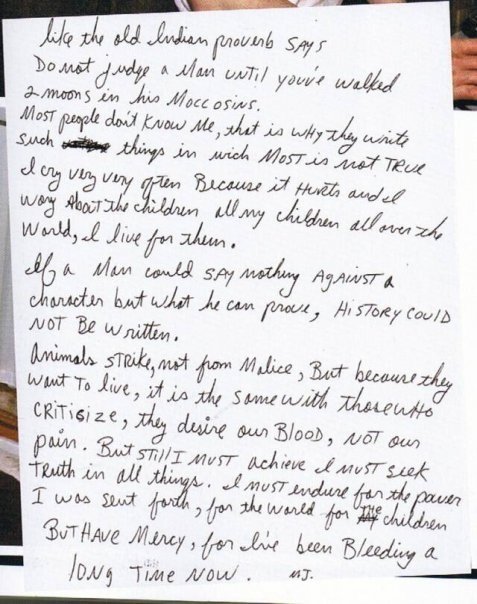 like the old Indian proverb SAYS
Do not judge a Man until you've walked
2 moons in his Moccosins.
MOST people don't KNOW Me, that is WHY they write
such things in wich MOST is not TRUE
I cry very very often Because it Hurts and I
wory About the children all my children all over the
World, I live for them.
If a Man could SAY nothing AGAINST a
character but what he can prove, HISTORY COULD
NOT BE Written.
Animals STRIKE, not from Malice, But because they
want To live, it is the same with those WHO
CRITISIZE, they desire our BLOOD, NOT our
pain. But STILL I MUST achieve I MUST seek
TRUTH in all things. I MUST endure for the power
I was sent forth, for the world for the children
BUT HAVE Mercy, for I've been Bleeding a
long Time NOW. MJ.